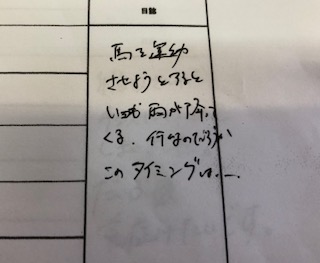 日誌
馬を運動
させようとすると
いつも雨が降って
くる。何なのだろうか
このタイミングは、ー